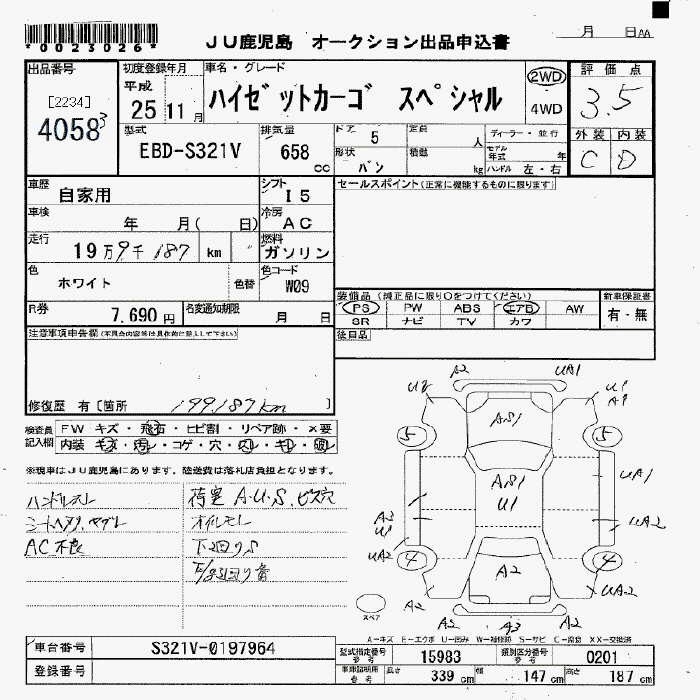 *0023026*
JU鹿児島 オークション出品申込書
月 日 AA
出品番号
[2234]
40583
初度登録年月
平成
25 11月
車名・グレード
ハイゼットカーゴ スペシャル
2WD
4WD
評価点
3.5
外装 内装
C D
型式
EBD-S321V
排気量
658 cc
ドア 5
定員 人
形状 バン
積載 kg
ディーラー・並行
モデル年式 年
ハンドル 左・右
車歴 自家用
シフト I5
セールスポイント(正常に機能するものに限ります)
車検 年 月( 日)
冷房 AC
走行 19万9千187 km
燃料 ガソリン
色 ホワイト
色替
色コード W09
R券 7,690円
名変通知期限 月 日
装備品(純正品に限り○をつけてください)
PS PW ABS エアB AW
SR ナビ TV カワ
新車保証書
有・無
注意事項申告欄(不具合内容等は具体的に記入して下さい)
後日品
修復歴 有[箇所 199,187km ]
検査員記入欄
FW キズ・飛石・ヒビ割・リペア跡・×要
内装 キズ・汚レ・コゲ・穴・スレ・キレ・破レ
※現車はJU鹿児島にあります。陸送費は落札店負担となります。
ハンドルスレ
荷室 A.U.S.ビス穴
オイルモレ
AC不良
下回りS
A2 UA1
U2 U1
A1
AS1
5 5
AS1
U1
UA1
A2
U1
UA2
UA2
4 4
A2
UA2
A2 A2
A2 A3
スペア
A-キズ E-エクボ U-凹み W-補修跡 S-サビ C-腐食 XX-交換済
車台番号 S321V-0197964
登録番号
型式指定番号 15983
類別区分番号 0201
長さ 339 cm
幅 147 cm
高さ 187 cm